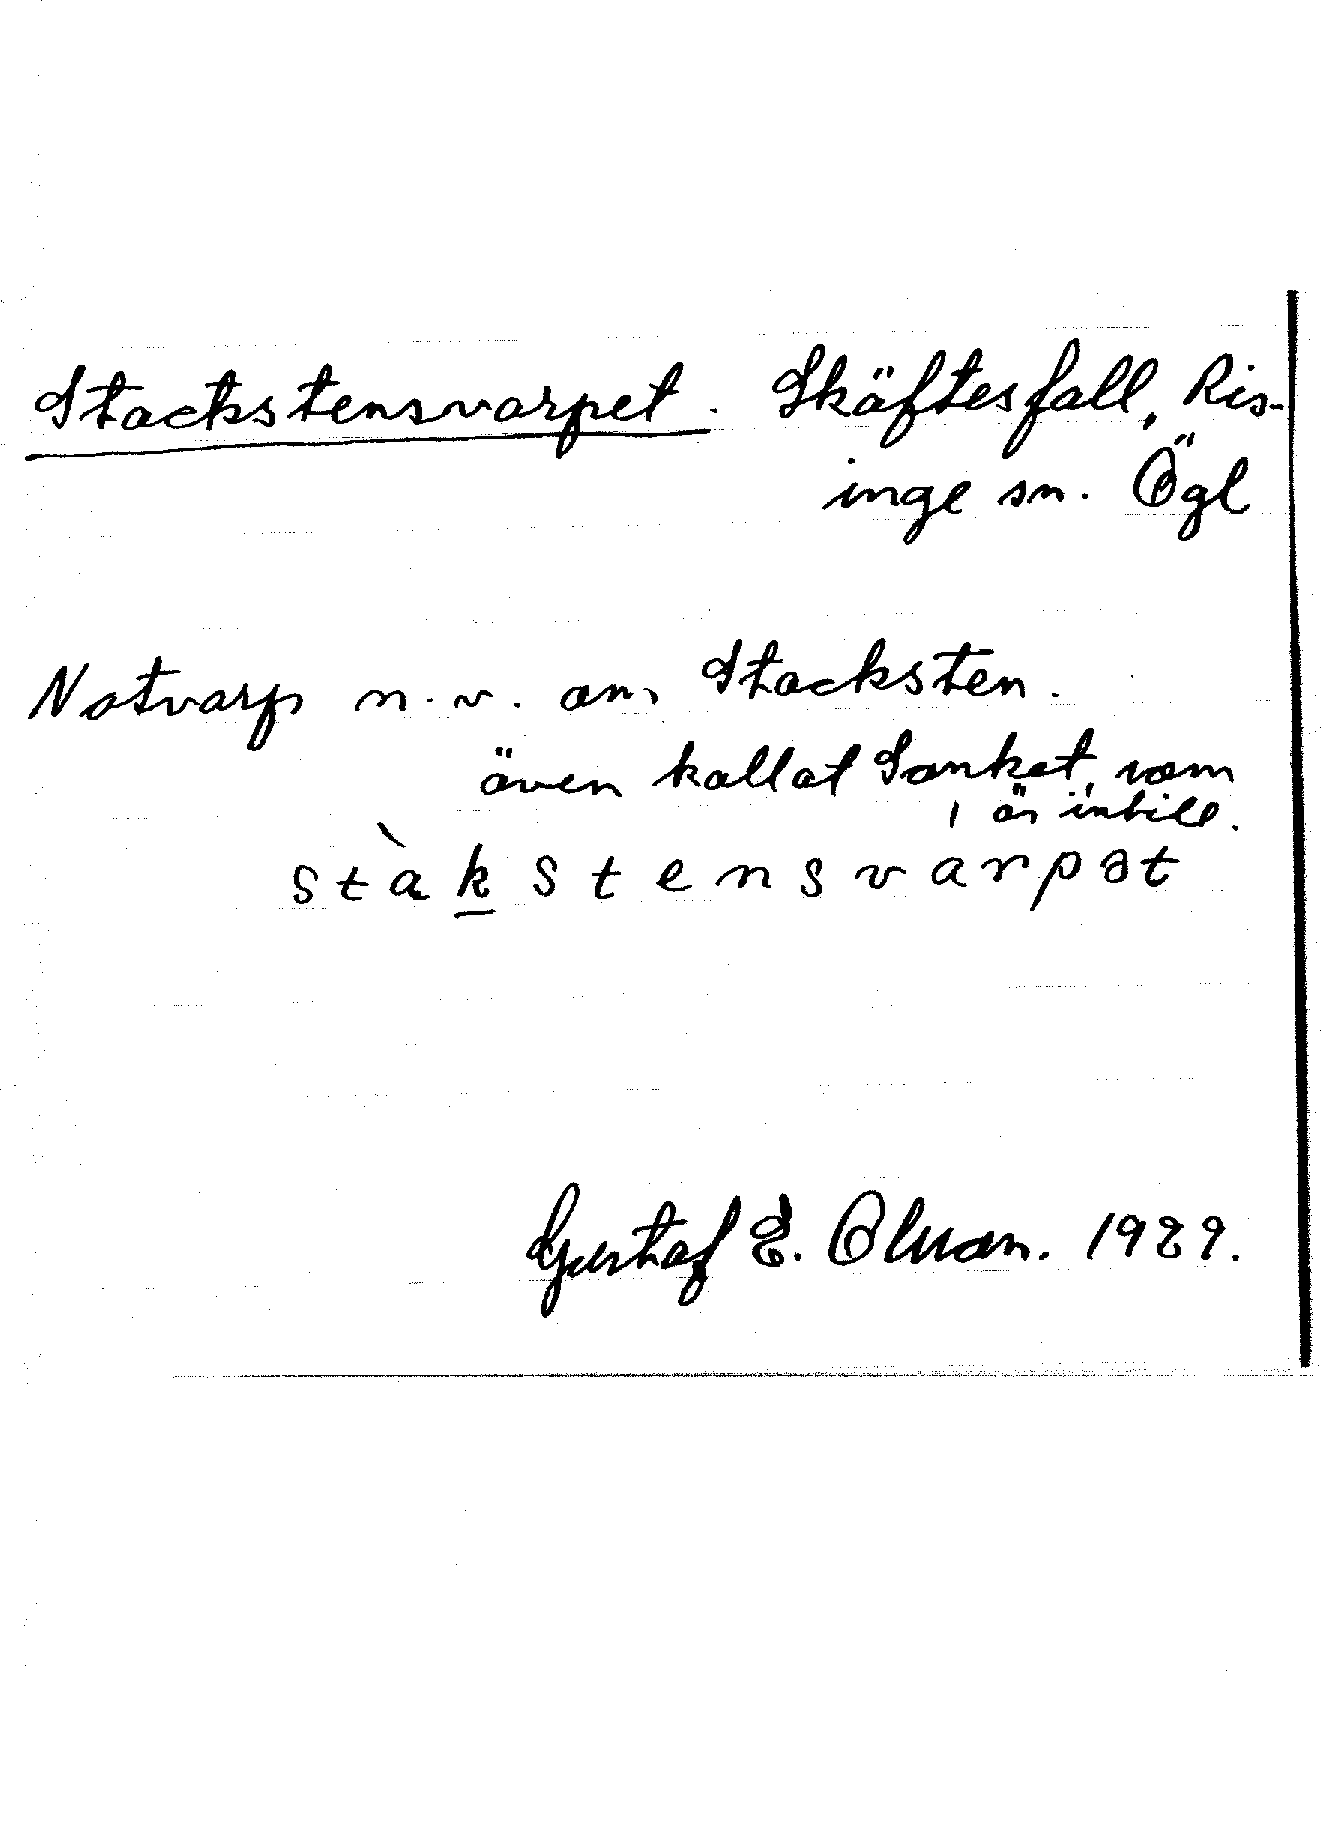 Stackstensvarpet. Skäftesfall, Ris-
inge sn. Ögl
Notvarp n.v. om Stacksten.
även kallat Sanket, som
är intill.
stàkstensvarpət
Gustaf E. Olson. 1929.